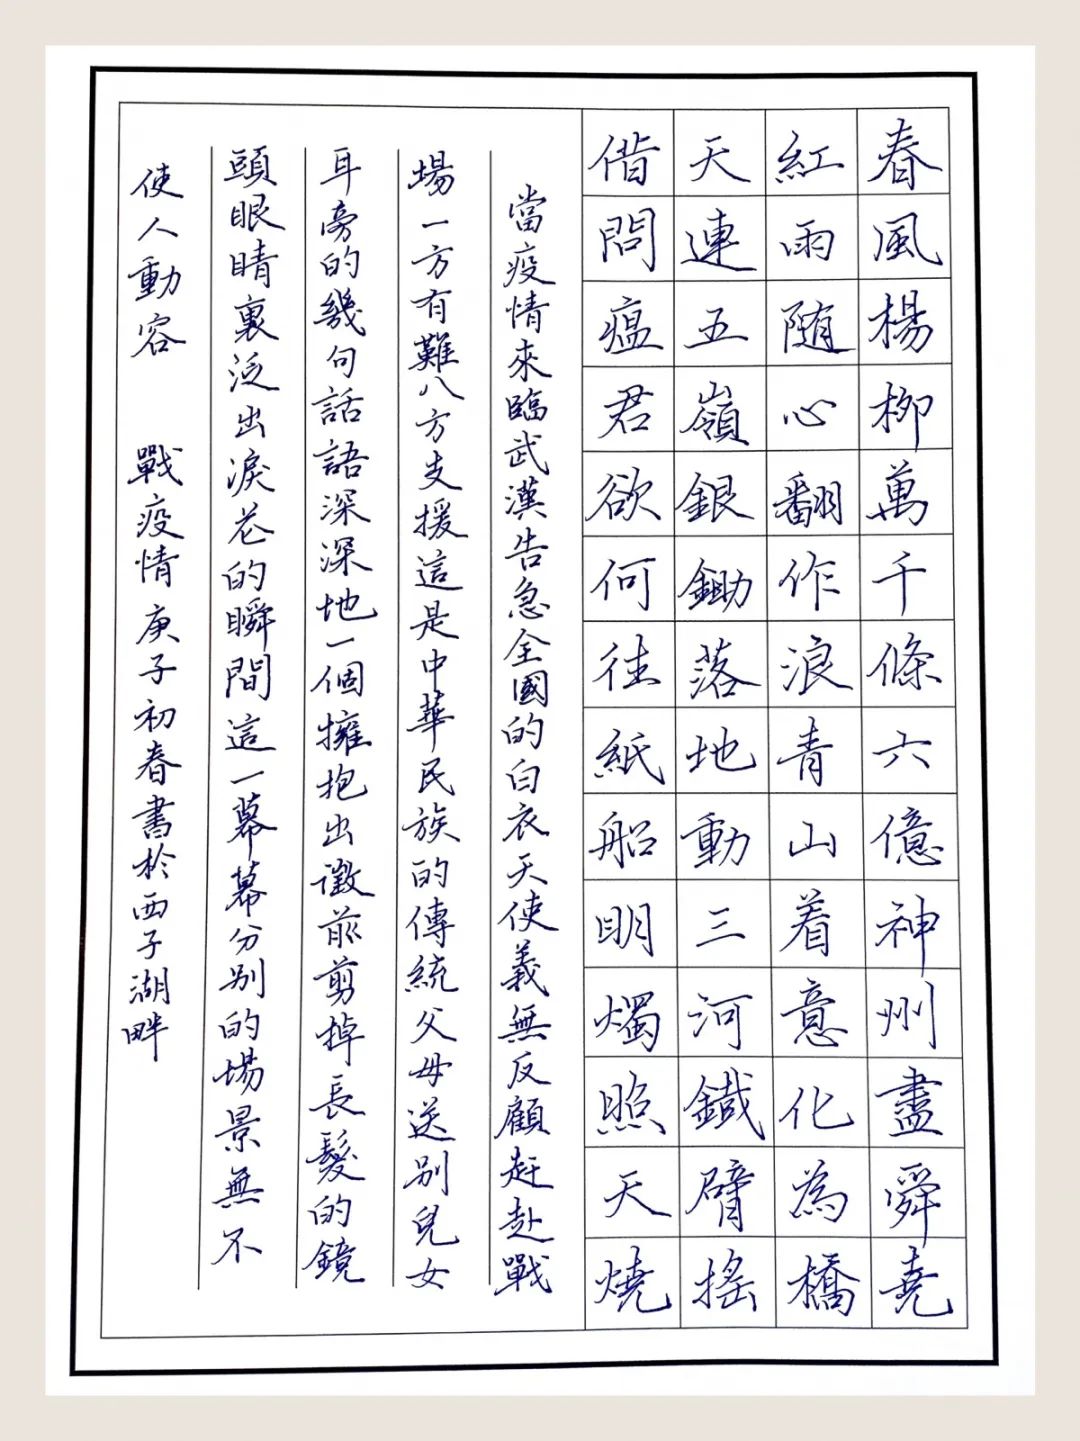 春風楊柳萬千條六億神州盡舜堯
紅雨随心翻作浪青山着意化為橋
天連五嶺銀鋤落地動三河鐵臂搖
借問瘟君欲何往紙船明燭照天燒
當疫情來臨武漢告急全國的白衣天使義無反顧赶赴戰
場一方有難八方支援這是中華民族的傳統父母送别兒女
耳旁的幾句話語深深地一個擁抱出徵前剪掉長髮的鏡
頭眼睛裏泛出淚花的瞬間這一幕幕分别的場景無不
使人動容 戰疫情庚子初春書於西子湖畔